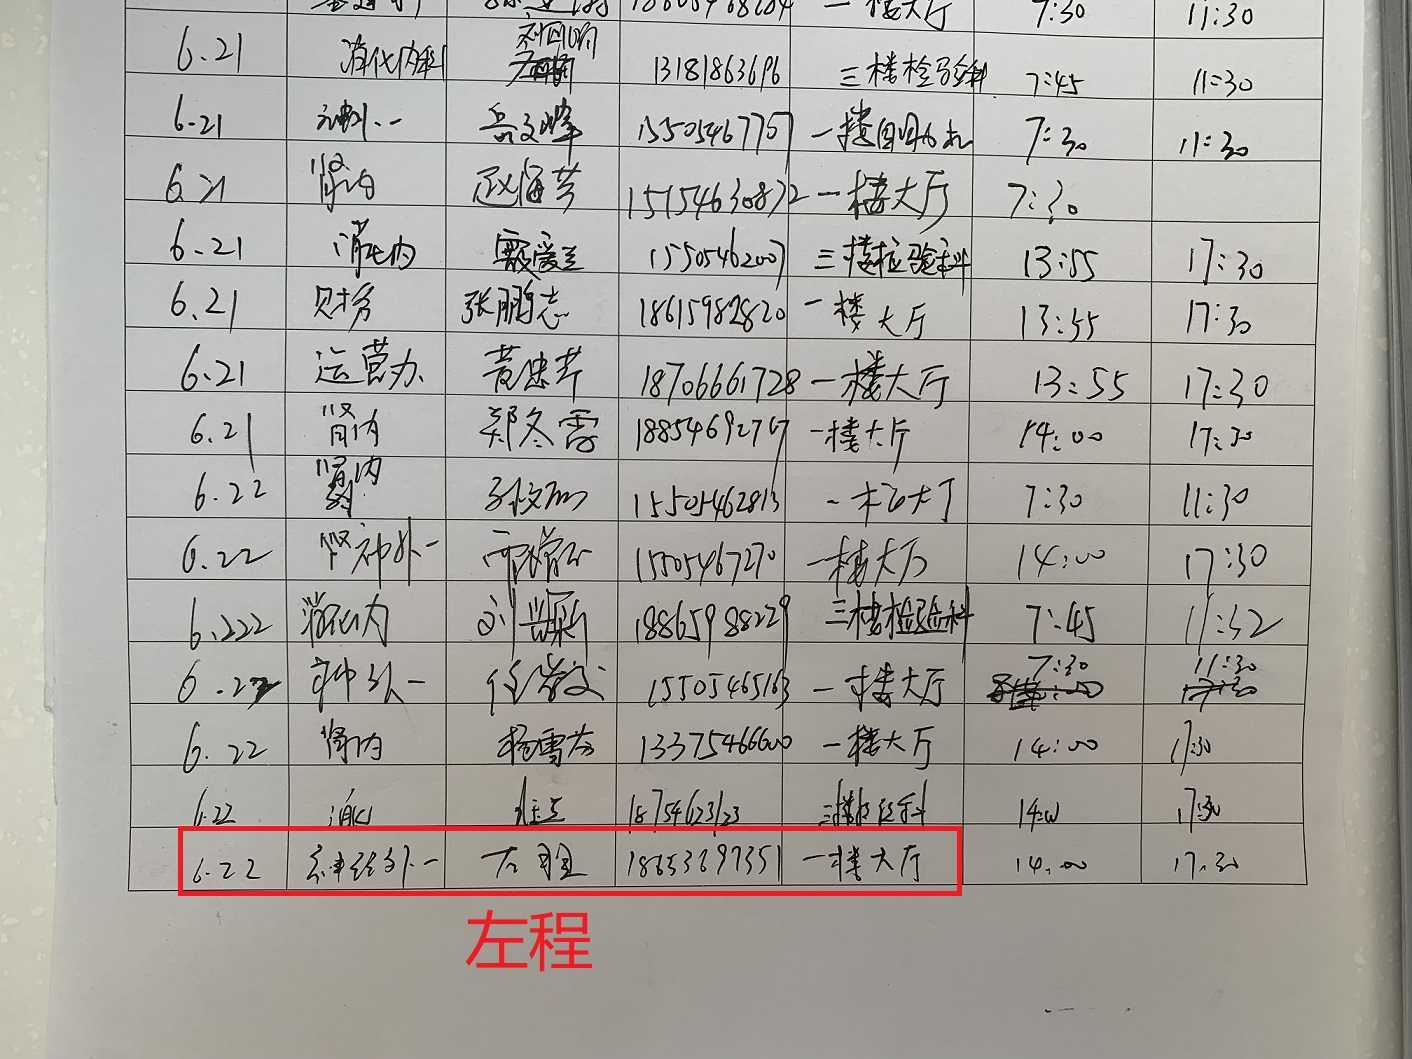 7:30 11:30
6.21 消化内科 13181863696 三楼检验科 7:45 11:30
6.21 神外一 岳文峰 15505467757 一楼自助机 7:30 11:30
6.21 肾内 赵海芳 15154630872 一楼大厅 7:30
6.21 消化内 15505462007 三楼检验科 13:55 17:30
6.21 财务 张鹏志 18615982820 一楼大厅 13:55 17:30
6.21 运营办 黄忠芹 18706661728 一楼大厅 13:55 17:30
6.21 肾内 郑冬雪 18854692767 一楼大厅 14:00 17:30
6.22 肾内 15505462813 一楼大厅 7:30 11:30
6.22 神外一 15505467270 一楼大厅 14:00 17:30
6.222 消化内 18865988229 三楼检验科 7:45 11:32
6.22 神外一 15505465163 一楼大厅 7:30 11:30
6.22 肾内 杨雪芳 13375466600 一楼大厅 14:00 17:30
6.22 消化 18754623123 三楼检验科 14:00 17:30
6.22 神经外一 左程 18653697351 一楼大厅 14:00 17:30
左程